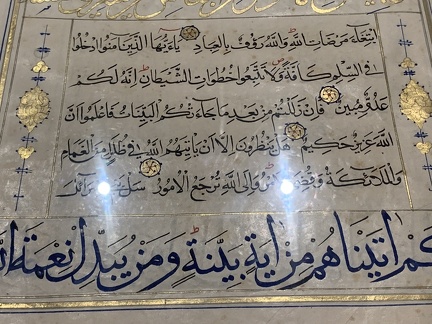 ابْتِغَاءَ مَرْضَاتِ اللهِ وَاللهُ رَؤُفٌ بِالْعِبَادِ يَاءَيُّهَا الَّذِينَ اٰمَنُوا ادْخُلُوا
فِى السِّلْمِ كَافَّةً وَلَا تَتَّبِعُوا خُطُوَاتِ الشَّيْطَانِ اِنَّهُ لَكُمْ
عَدُوٌّ مُبِينٌ فَاِنْ زَلَلْتُمْ مِنْ بَعْدِ مَا جَاءَتْكُمُ الْبَيِّنَاتُ فَاعْلَمُوا اَنَّ
اللهَ عَزِيزٌ حَكِيمٌ هَلْ يَنْظُرُونَ اِلَّا اَنْ يَأْتِيَهُمُ اللهُ فِى ظُلَلٍ مِنَ الْغَمَامِ
وَالْمَلَائِكَةُ وَقُضِىَ وَاِلَى اللهِ تُرْجَعُ الْاُمُورُ سَلْ
كَمْ اٰتَيْنَاهُمْ مِنْ اٰيَةٍ بَيِّنَةٍ وَمَنْ يُبَدِّلْ نِعْمَةَ